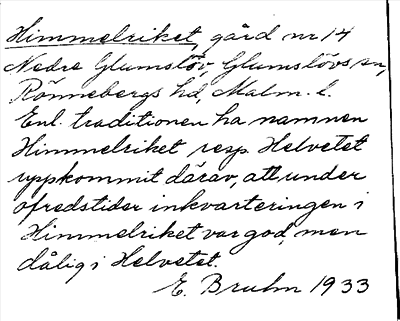 Himmelriket, gård nr 14
Nedre Glumslöv, Glumslövs sn,
Rönnebergs hd, Malm. l.
Enl. traditionen ha namnen
Himmelriket resp. Helvetet
uppkommit därav, att under
ofredstider inkvarteringen i
Himmelriket var god, men
dålig i Helvetet.
E. Bruhn 1933